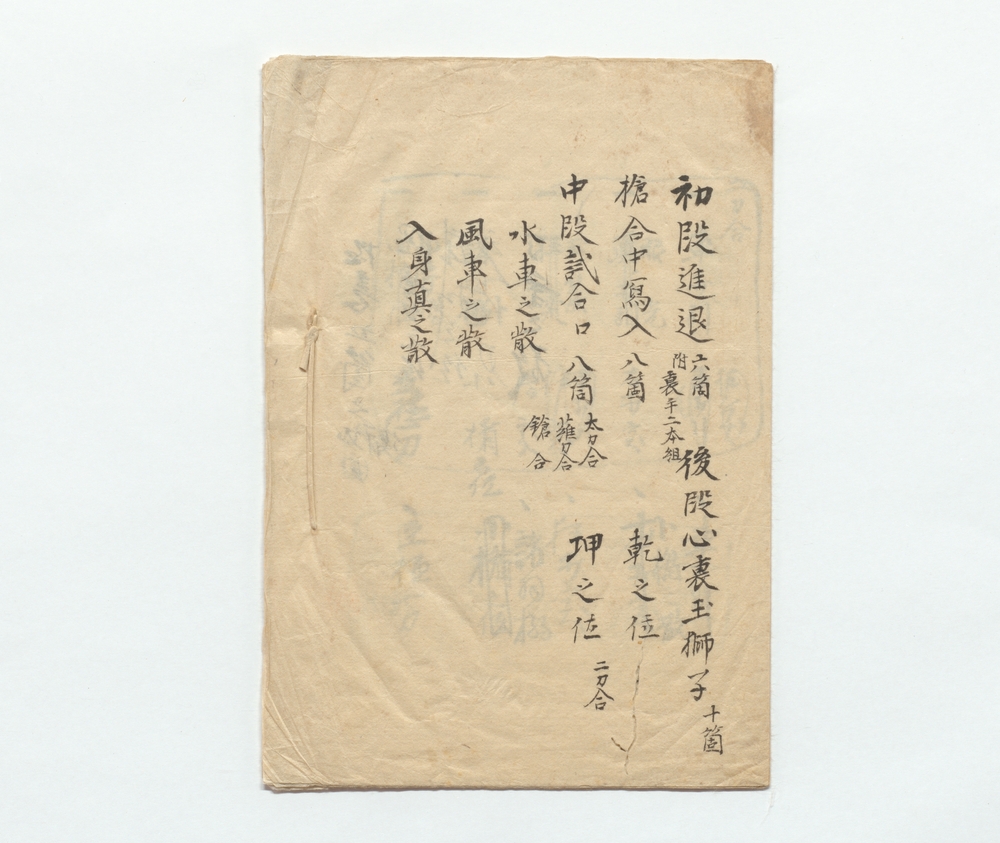 初段進退
六箇
附裏平二本組
後段心裏玉獅子
十箇
槍合中寫入
八箇
乾之位
中段試合口
八箇
太刀合
薙刀合
鎗合
坤之位
二刀合
水車之散
風車之散
入身真之散